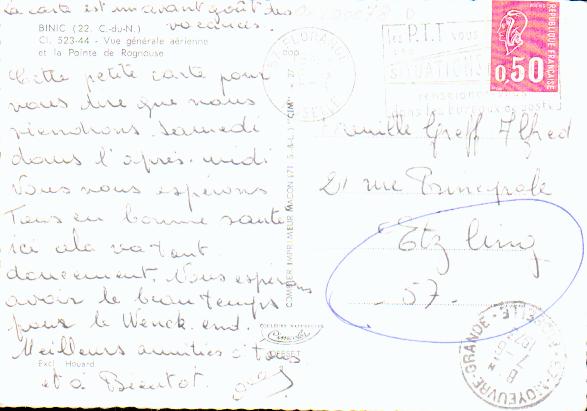 La carte est un avant goût des
vacances.
BINIC (22. C.-du-N.)
Cl. 523-44 - Vue générale aérienne
et la Pointe de Rognouse
Cette petite carte pour
vous dire que nous
viendrons samedi
dans l'après-midi
Vous nous espérons
Tous en bonne santé
ici cela va tout
doucement. Nous espérons
avoir le beau temps
pour le Week end.
Meilleurs amitiés à tous
et à Bientot.
Excl. Houard
COMBIER IMPRIMEUR MACON (71 S.-&-L.) "CIM"
les P.T.T vous
SITUATIONS
dans les bureaux de poste
REPUBLIQUE FRANÇAISE
0,50
Famille Greff Alfred
21 rue Principale
Etzling
57.
MOYEUVRE-GRANDE
MOSELLE